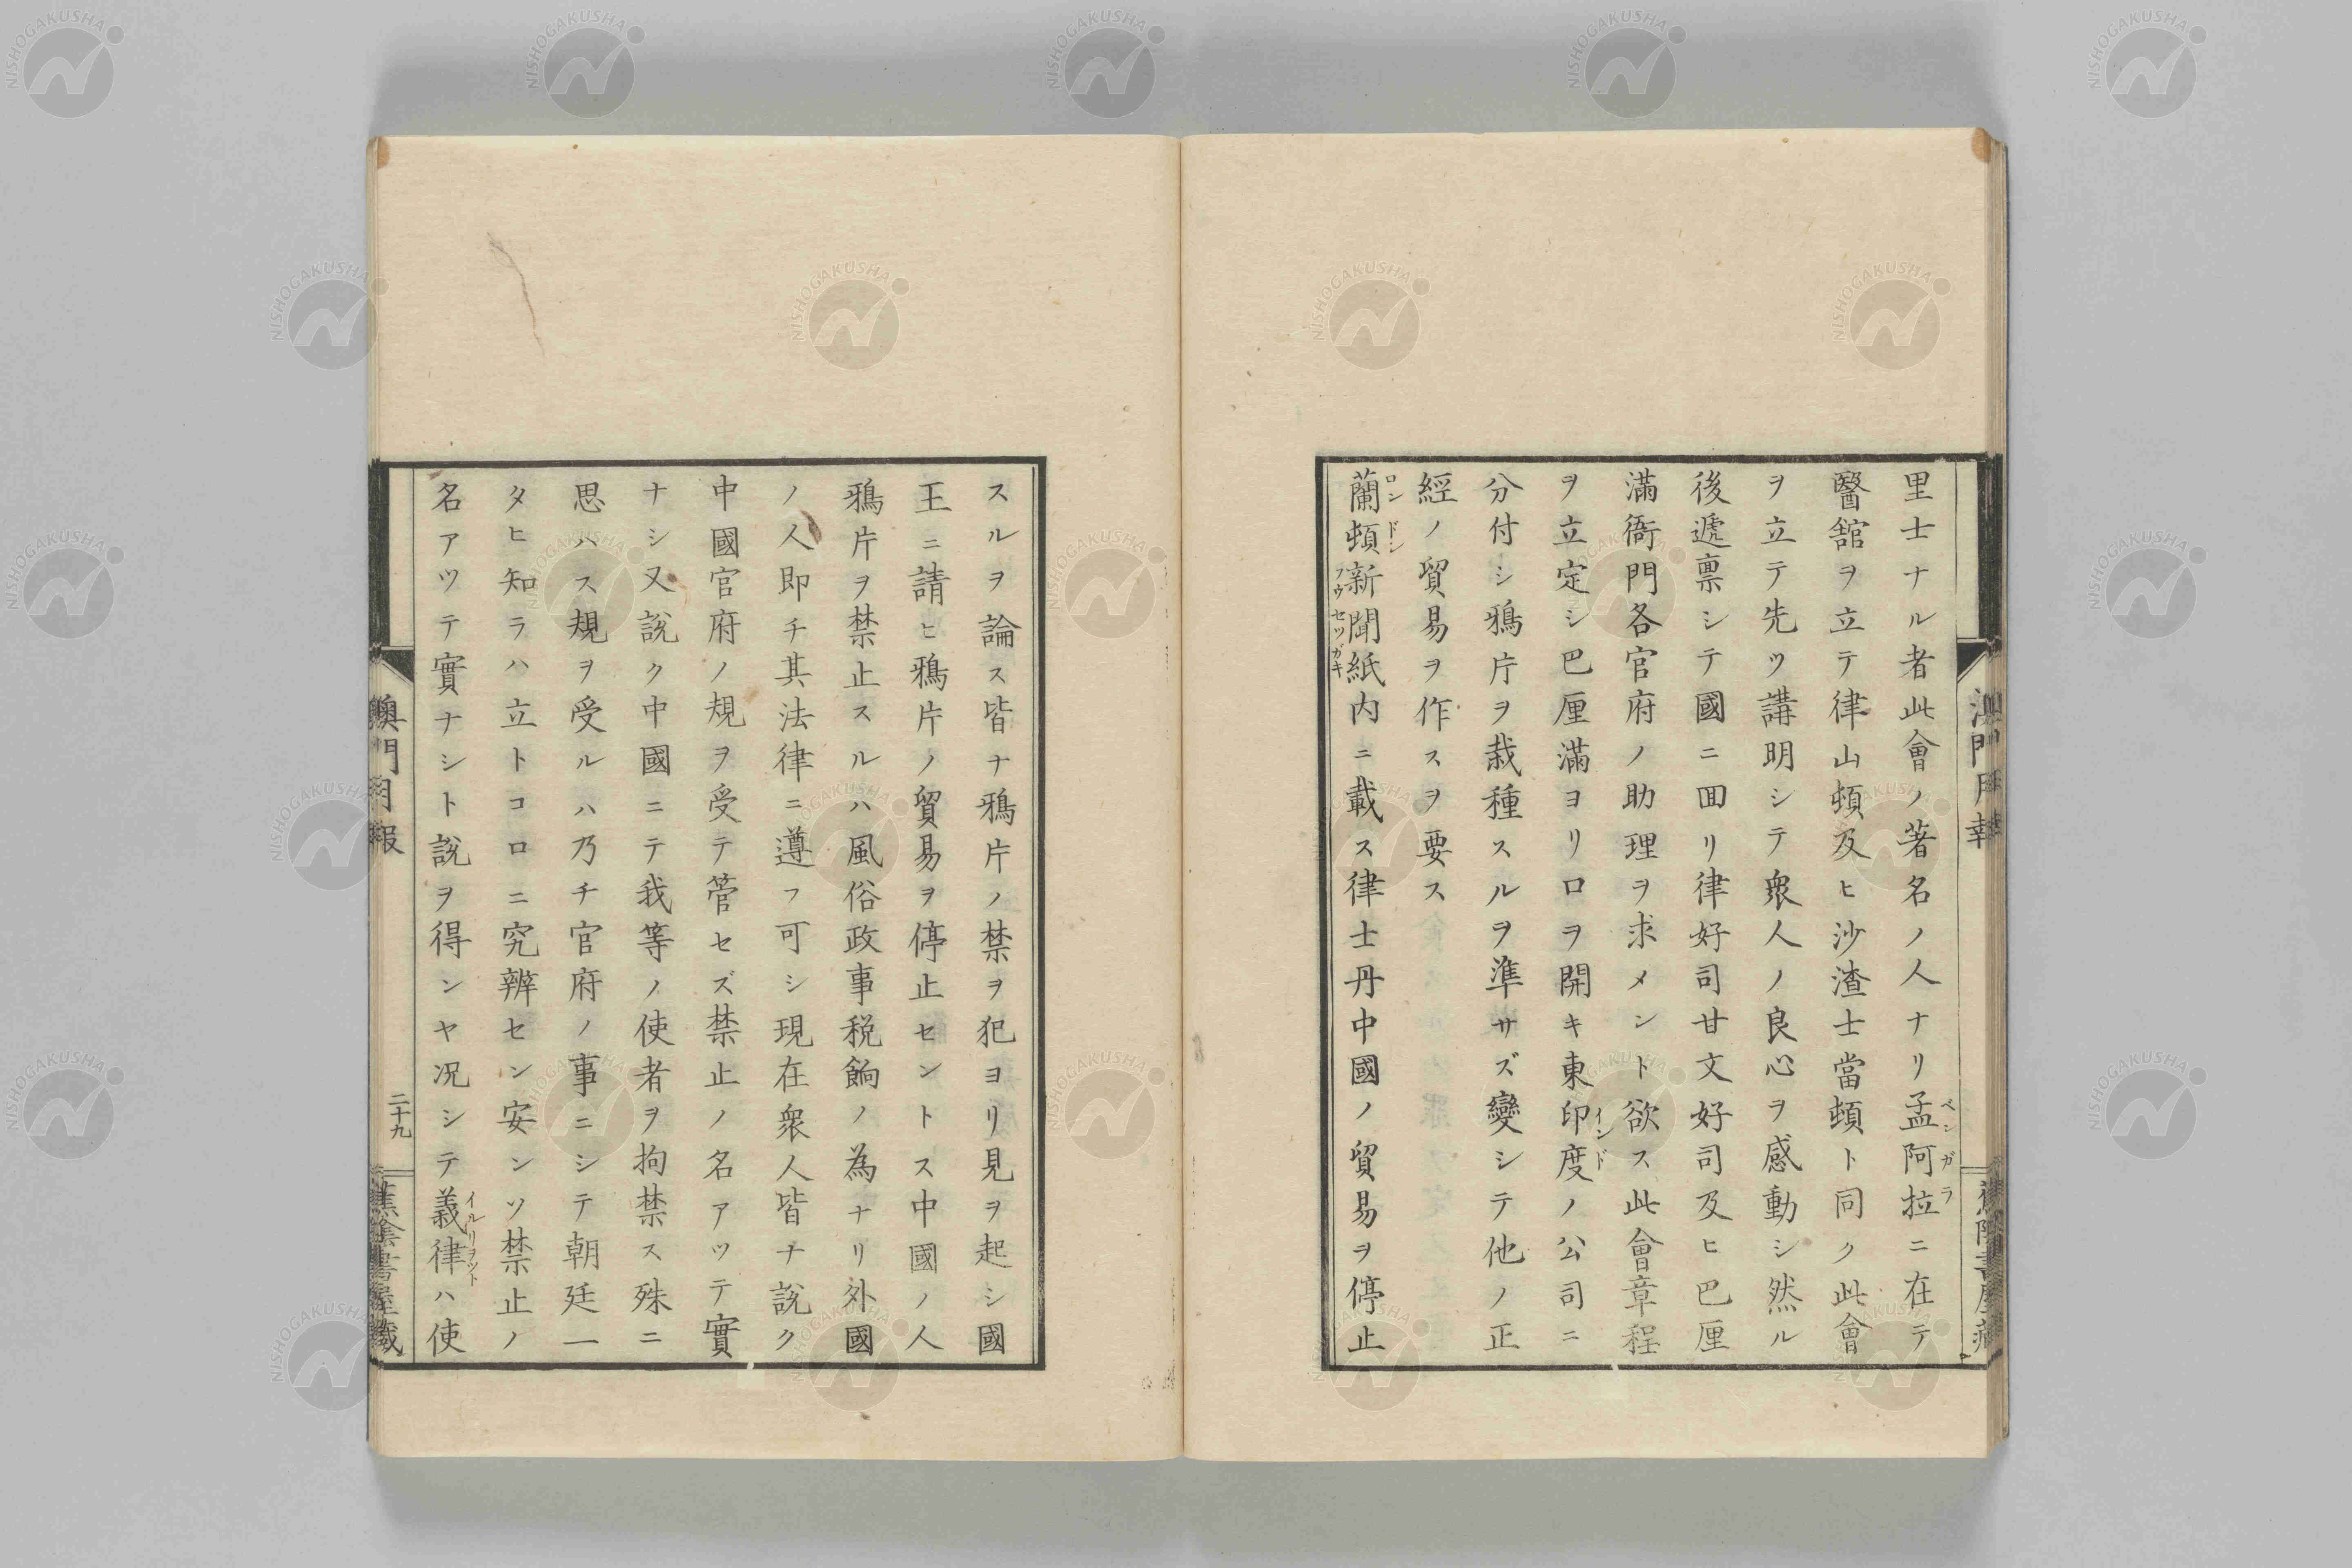 里士ナル者此會ノ著名ノ人ナリ孟阿拉ニ在テ
ベンガラ
醫舘ヲ立テ律山頓及ヒ沙渣士當頓ト同ク此會
ヲ立テ先ツ講明シテ衆人ノ良心ヲ感動シ然ル
後遞禀シテ國ニ回リ律好司甘文好司及ヒ巴厘
滿衙門各官府ノ助理ヲ求メント欲ス此會章程
ヲ立定シ巴厘滿ヨリ口ヲ開キ東印度ノ公司ニ
インド
分付シ鴉片ヲ栽種スルヲ準サズ變シテ他ノ正
經ノ貿易ヲ作スヲ要ス
蘭頓新聞紙内ニ載ス律士丹中國ノ貿易ヲ停止
ロンドン
フウセツガキ
澳門月報
蕉陰書屋藏
スルヲ論ス皆ナ鴉片ノ禁ヲ犯ヨリ見ヲ起シ國
王ニ請ヒ鴉片ノ貿易ヲ停止セントス中國ノ人
鴉片ヲ禁止スルハ風俗政事税餉ノ為ナリ外國
ノ人即チ其法律ニ遵フ可シ現在衆人皆ナ説ク
中國官府ノ規ヲ受テ管セズ禁止ノ名アツテ實
ナシ又説ク中國ニテ我等ノ使者ヲ拘禁ス殊ニ
思ハス規ヲ受ルハ乃チ官府ノ事ニシテ朝廷一
タヒ知ラハ立トコロニ究辨セン安ンソ禁止ノ
名アツテ實ナシト説ヲ得ンヤ况シテ義律ハ使
イルリヲツト
澳門月報
二十九
蕉陰書屋藏
NISHOGAKUSHA